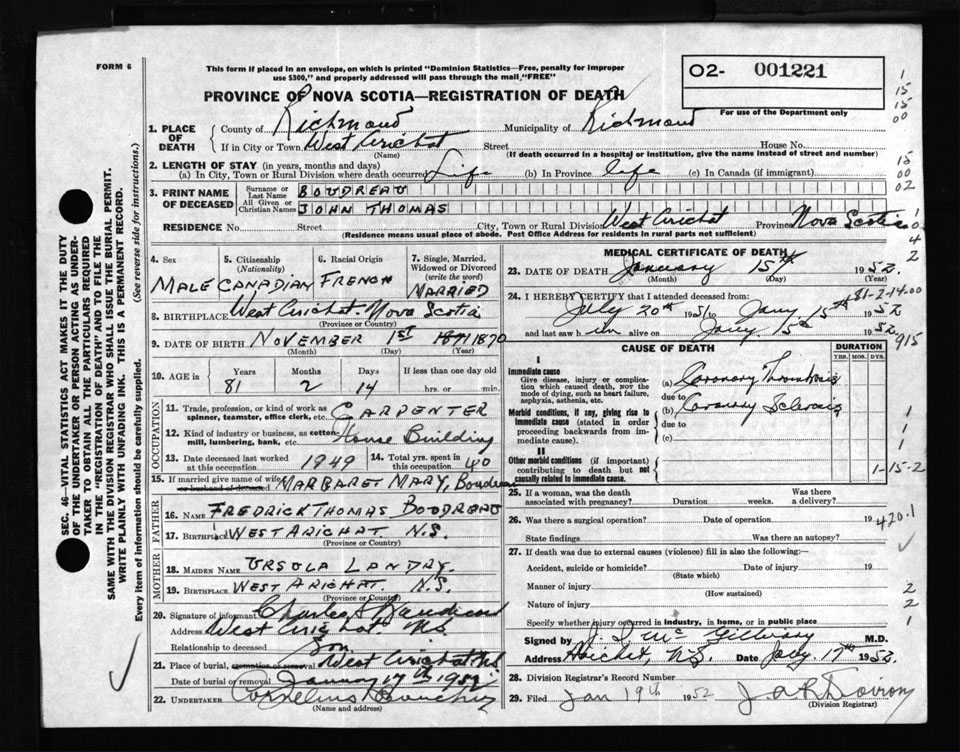 FORM 6
This form if placed in an envelope, on which is printed "Dominion Statistics—Free, penalty for improper
use $300," and properly addressed will pass through the mail "FREE"
O2- 001221
For use of the Department only
PROVINCE OF NOVA SCOTIA—REGISTRATION OF DEATH
1. PLACE OF DEATH
County of Richmond Municipality of Richmond
If in City or Town West Arichat Street House No.
(Name) (If death occurred in a hospital or institution, give the name instead of street and number)
2. LENGTH OF STAY (in years, months and days)
(a) In City, Town or Rural Division where death occurred Life (b) In Province life (c) In Canada (if immigrant)
3. PRINT NAME OF DECEASED
Surname or Last Name BOUDREAU
All Given or Christian Names JOHN THOMAS
RESIDENCE No. Street City, Town or Rural Division West Arichat Province Nova Scotia
(Residence means usual place of abode. Post Office Address for residents in rural parts not sufficient)
4. Sex
MALE
5. Citizenship (Nationality)
CANADIAN
6. Racial Origin
FRENCH
7. Single, Married, Widowed or Divorced (write the word)
MARRIED
8. BIRTHPLACE West Arichat. Nova Scotia
(Province or Country)
9. DATE OF BIRTH NOVEMBER 1ST 1871 1870
(Month) (Day) (Year)
10. AGE in Years Months Days If less than one day old
81 2 14 hrs. or min.
OCCUPATION
11. Trade, profession, or kind of work as spinner, teamster, office clerk, etc. CARPENTER
12. Kind of industry or business, as cotton-mill, lumbering, bank, etc. House Building
13. Date deceased last worked at this occupation 1949
14. Total yrs. spent in this occupation 40
15. If married give name of wife or husband of deceased MARGARET MARY, Boudreau
FATHER
16. NAME FREDRICK THOMAS BOUDREAU
17. BIRTHPLACE WEST ARICHAT N.S.
(Province or Country)
MOTHER
18. MAIDEN NAME URSULA LANDRY.
19. BIRTHPLACE WEST ARICHAT N.S.
(Province or Country)
20. Signature of informant Charles
Address West Arichat NS
Relationship to deceased Son
21. Place of burial, cremation or removal West Arichat NS
Date of burial or removal January 17th 1952
22. UNDERTAKER Cornelius
(Name and address)
MEDICAL CERTIFICATE OF DEATH
23. DATE OF DEATH January 15th 1952.
(Month) (Day) (Year)
24. I HEREBY CERTIFY that I attended deceased from:
81-2-14.00
July 20th 1951 to Jany 15th 1952
and last saw h im alive on Jany 15th 1952.
915
CAUSE OF DEATH
DURATION
YRS. MOS. DYS.
I
Immediate cause
Give disease, injury or complication which caused death, not the mode of dying, such as heart failure, asphyxia, asthenia, etc.
(a) Coronary Thrombosis
due to
Morbid conditions, if any, giving rise to immediate cause (stated in order proceeding backwards from immediate cause).
(b) Coronary Sclerosis
due to
(c)
II
Other morbid conditions (if important) contributing to death but not causally related to immediate cause.
1-15-2
25. If a woman, was the death associated with pregnancy? Duration weeks. Was there a delivery?
26. Was there a surgical operation? Date of operation 19
420.1
State findings Was there an autopsy?
27. If death was due to external causes (violence) fill in also the following:—
Accident, suicide or homicide? Date of injury 19
(State which)
Manner of injury
(How sustained)
Nature of injury
Specify whether injury occurred in industry, in home, or in public place
Signed by J. D. McGillivary M.D.
Address Arichat, N.S. Date Jany 17th 1952.
28. Division Registrar's Record Number
29. Filed Jan 19th 1952
(Division Registrar)
SEC. 46—VITAL STATISTICS ACT MAKES IT THE DUTY
OF THE UNDERTAKER OR PERSON ACTING AS UNDER-
TAKER TO OBTAIN ALL THE PARTICULARS REQUIRED
IN THE "REGISTRATION OF DEATH" AND TO FILE THE
SAME WITH THE DIVISION REGISTRAR WHO SHALL ISSUE THE BURIAL PERMIT.
WRITE PLAINLY WITH UNFADING INK. THIS IS A PERMANENT RECORD.
Every item of information should be carefully supplied. (See reverse side for instructions.)
1
15
15
00
15
00
02
1
4
2
1
1
2
2
1